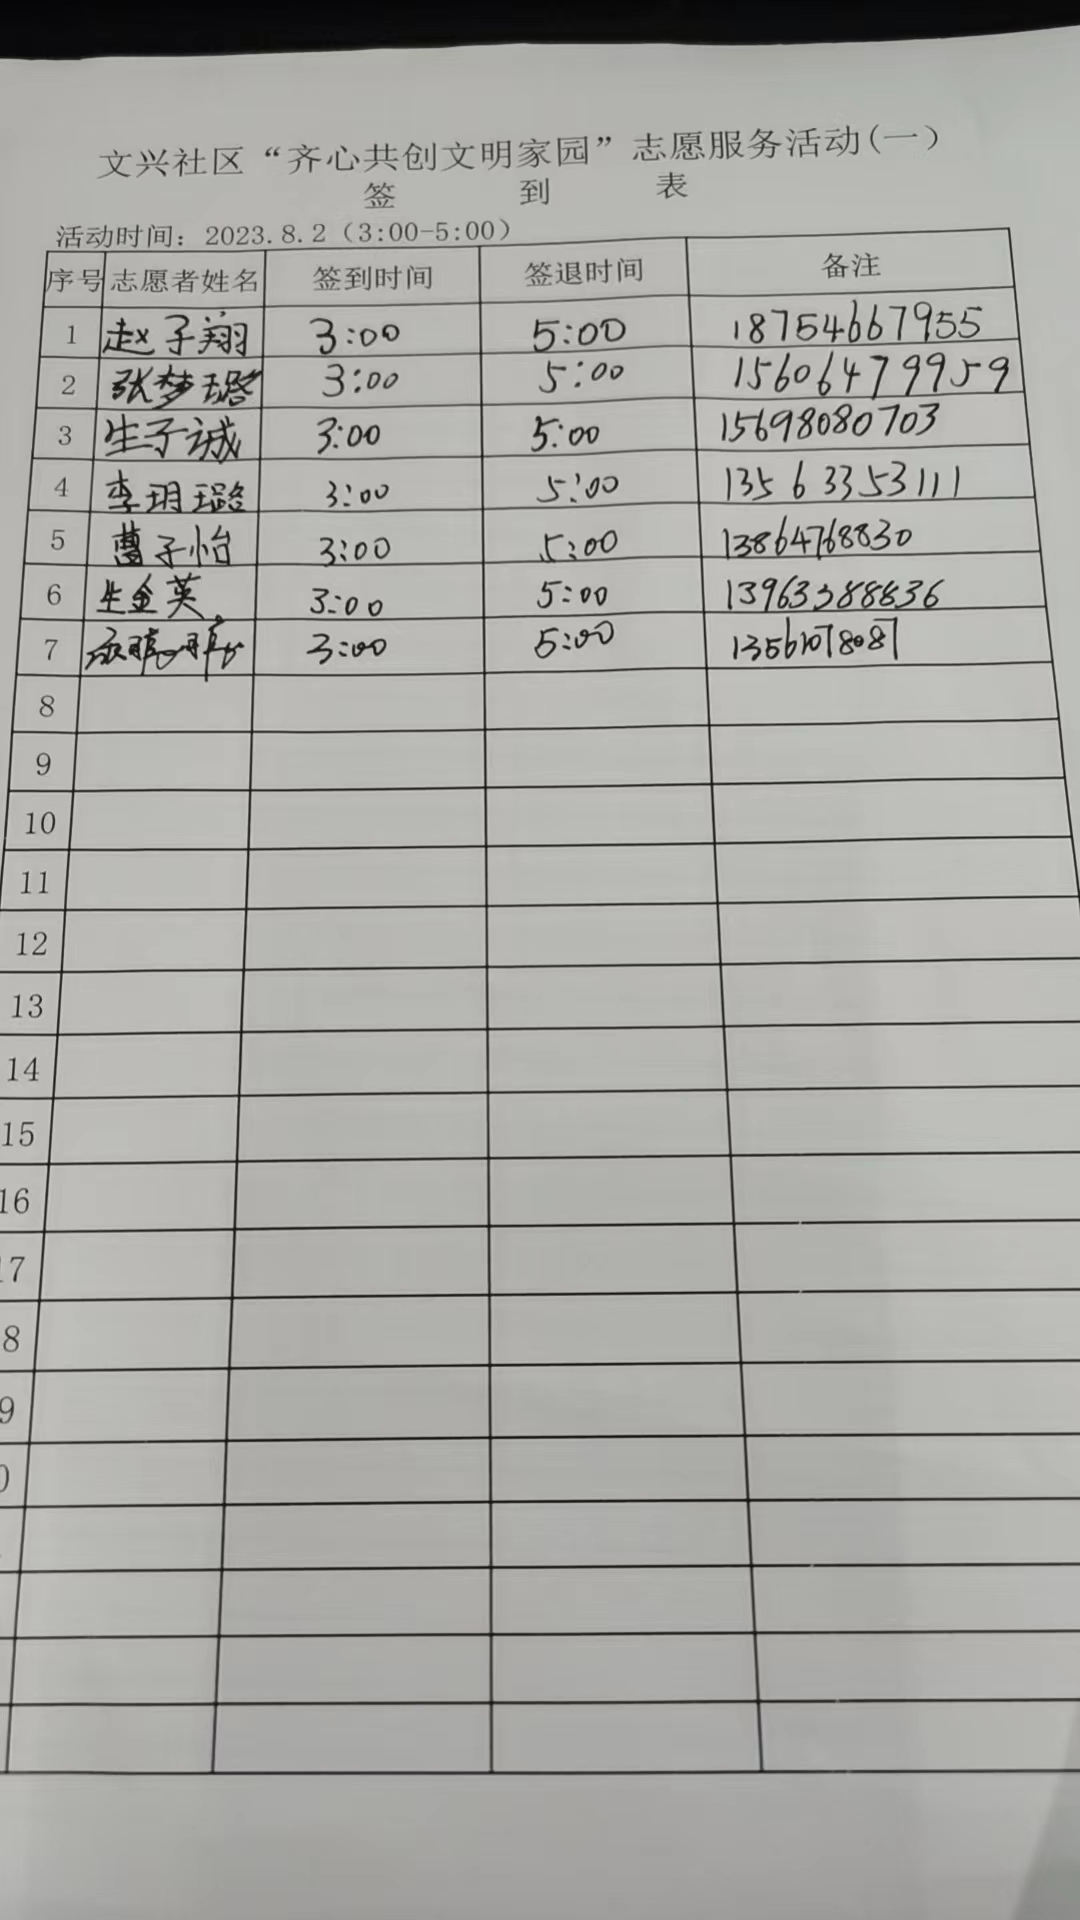 文兴社区“齐心共创文明家园”志愿服务活动(一)
签 到 表
活动时间: 2023.8.2（3:00-5:00）
序号 志愿者姓名 签到时间 签退时间 备注
1 赵子翔 3:00 5:00 18754667955
2 张梦璐 3:00 5:00 15606479959
3 生子诚 3:00 5:00 15698080703
4 李玥璐 3:00 5:00 13563353111
5 曹子怡 3:00 5:00 13864768830
6 生金英 3:00 5:00 13963388836
7 3:00 5:00 13561078087
8
9
10
11
12
13
14
15
16
17
8
9
0